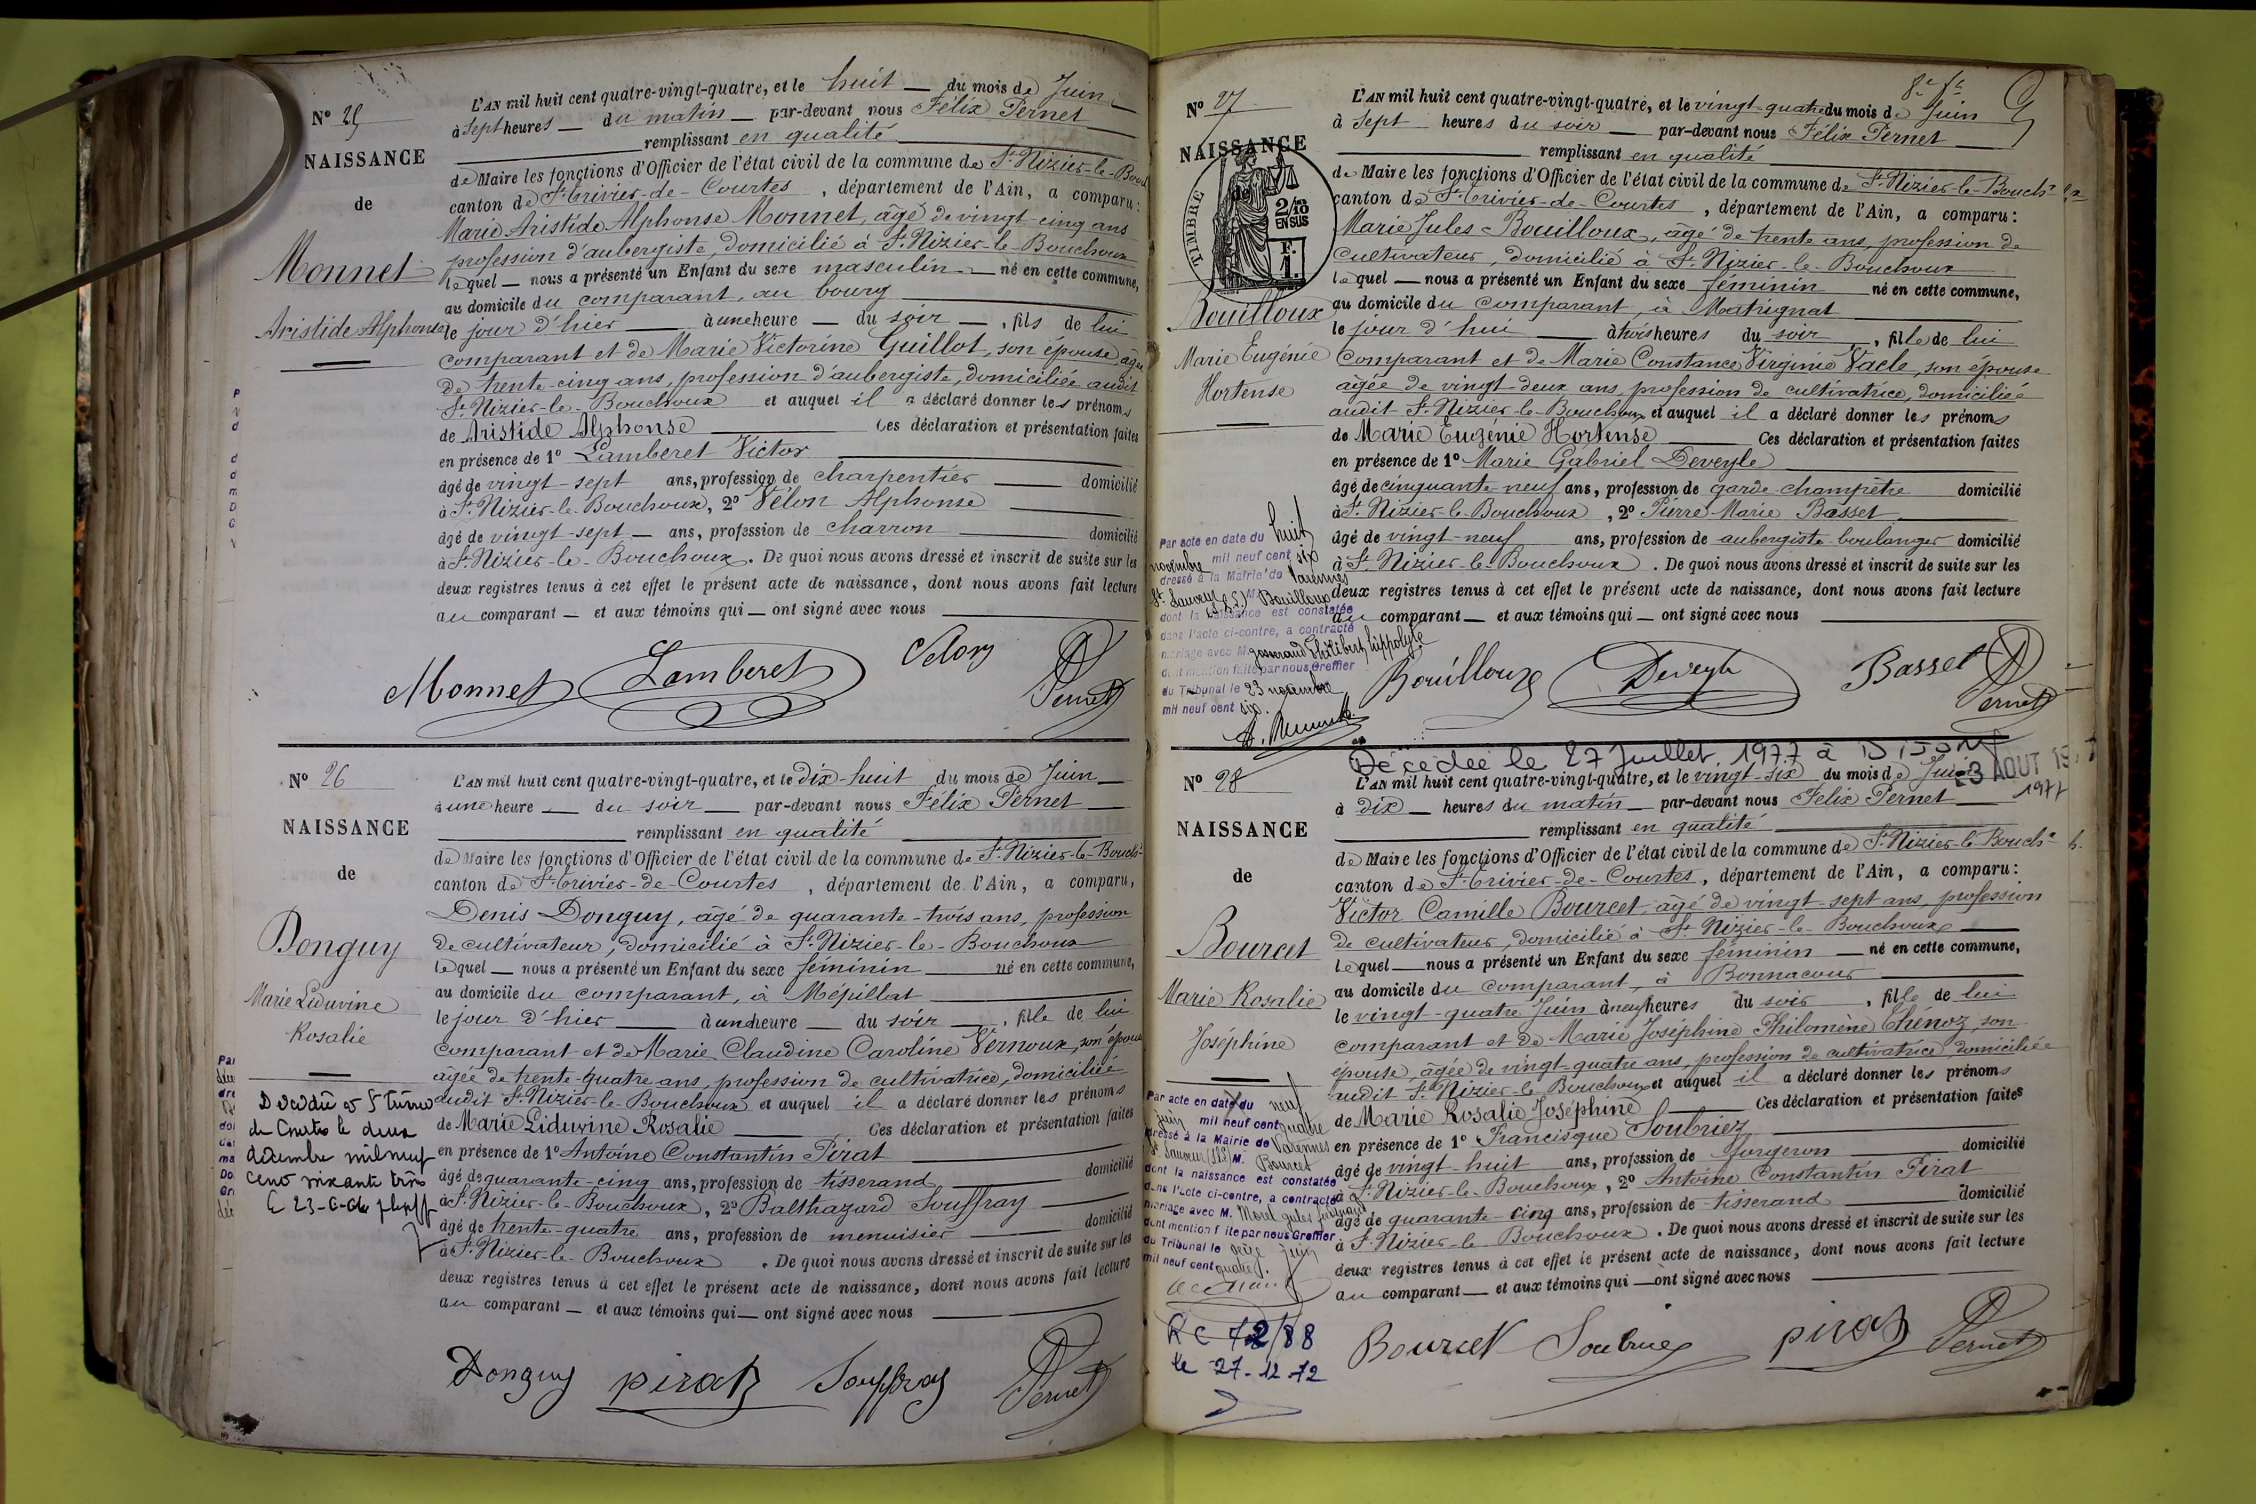 N° 25
NAISSANCE
de
Monnet
Aristide Alphonse
L'AN mil huit cent quatre-vingt-quatre, et le huit du mois de Juin
à sept heures du matin par-devant nous Félix Pernet
remplissant en qualité
de Maire les fonctions d'Officier de l'état civil de la commune de St Nizier-le-Bouch
canton de St Trivier-de-Courtes, département de l'Ain, a comparu:
Marie Aristide Alphonse Monnet, âgé de vingt-cinq ans
profession d'aubergiste, domicilié à St Nizier-le-Bouchoux
lequel nous a présenté un Enfant du sexe masculin né en cette commune,
au domicile du comparant, au bourg
le jour d'hier à une heure du soir, fils de lui
comparant et de Marie Victorine Guillot, son épouse, âgée
de trente-cinq ans, profession d'aubergiste, domiciliée audit
St Nizier-le-Bouchoux et auquel il a déclaré donner les prénoms
de Aristide Alphonse Ces déclaration et présentation faites
en présence de 1° Lamberet Victor
âgé de vingt-sept ans, profession de charpentier domicilié
à St Nizier-le-Bouchoux, 2° Vélon Alphonse
âgé de vingt-sept ans, profession de charron domicilié
à St Nizier-le-Bouchoux. De quoi nous avons dressé et inscrit de suite sur les
deux registres tenus à cet effet le présent acte de naissance, dont nous avons fait lecture
au comparant et aux témoins qui ont signé avec nous
Monnet Lamberet Velon Pernet
N° 26
NAISSANCE
de
Donguy
Marie Liduvine
Rosalie
Décédée à St Trivier
de Courtes le deux
décembre mil neuf
cent soixante trois
L'AN mil huit cent quatre-vingt-quatre, et le dix-huit du mois de Juin
à une heure du soir par-devant nous Félix Pernet
remplissant en qualité
de Maire les fonctions d'Officier de l'état civil de la commune de St Nizier-le-Bouch
canton de St Trivier-de-Courtes, département de l'Ain, a comparu,
Denis Donguy, âgé de quarante-trois ans, profession
de cultivateur, domicilié à St Nizier-le-Bouchoux
lequel nous a présenté un Enfant du sexe féminin né en cette commune,
au domicile du comparant, à Mépillat
le jour d'hier à une heure du soir, fille de lui
comparant et de Marie Claudine Caroline Vernoux, son épouse
âgée de trente-quatre ans, profession de cultivatrice, domiciliée
audit St Nizier-le-Bouchoux et auquel il a déclaré donner les prénoms
de Marie Liduvine Rosalie Ces déclaration et présentation faites
en présence de 1° Antoine Constantin Pirat
âgé de quarante-cinq ans, profession de tisserand domicilié
à St Nizier-le-Bouchoux, 2° Balthazard Souffray
âgé de trente-quatre ans, profession de menuisier domicilié
à St Nizier-le-Bouchoux. De quoi nous avons dressé et inscrit de suite sur les
deux registres tenus à cet effet le présent acte de naissance, dont nous avons fait lecture
au comparant et aux témoins qui ont signé avec nous
Donguy pirat Souffray Pernet
N° 27
NAISSANCE
de
TIMBRE
2/10
EN SUS
F.
1.
Bouilloux
Marie Eugénie
Hortense
Par acte en date du huit
novembre mil neuf cent six
dressé à la Mairie de Varennes
St Sauveur (S&L) M Bouilloux
dont la naissance est constatée
dans l'acte ci-contre, a contracté
mariage avec M. Josserand Philibert hippolyte
dont mention faite par nous Greffier
du Tribunal le 23 novembre
mil neuf cent six.
8e fe
L'AN mil huit cent quatre-vingt-quatre, et le vingt-quatre du mois de Juin
à sept heures du soir par-devant nous Félix Pernet
remplissant en qualité
de Maire les fonctions d'Officier de l'état civil de la commune de St Nizier-le-Bouch
canton de St Trivier-de-Courtes, département de l'Ain, a comparu:
Marie Jules Bouilloux, âgé de trente ans, profession de
cultivateur, domicilié à St Nizier-le-Bouchoux
lequel nous a présenté un Enfant du sexe féminin né en cette commune,
au domicile du comparant, à Matrignat
le jour d'hui à trois heures du soir, fille de lui
comparant et de Marie Constance Virginie Vacle, son épouse
âgée de vingt-deux ans, profession de cultivatrice, domiciliée
audit St Nizier-le-Bouchoux et auquel il a déclaré donner les prénoms
de Marie Eugénie Hortense Ces déclaration et présentation faites
en présence de 1° Marie Gabriel Deveyle
âgé de cinquante-neuf ans, profession de garde-champêtre domicilié
à St Nizier-le-Bouchoux, 2° Pierre-Marie Basset
âgé de vingt-neuf ans, profession de aubergiste-boulanger domicilié
à St Nizier-le-Bouchoux. De quoi nous avons dressé et inscrit de suite sur les
deux registres tenus à cet effet le présent acte de naissance, dont nous avons fait lecture
au comparant et aux témoins qui ont signé avec nous
Bouilloux Deveyle Basset Pernet
Décédée le 27 Juillet 1977 à DIJON
3 AOUT
1977
N° 28
NAISSANCE
de
Bourcet
Marie Rosalie
Joséphine
Par acte en date du neuf
juin mil neuf cent quatre
dressé à la Mairie de Varennes
St Sauveur (S&L) M. Bourcet
dont la naissance est constatée
dans l'acte ci-contre, a contracté
mariage avec M. Morel Jules
dont mention faite par nous Greffier
du Tribunal le seize juin
mil neuf cent quatre.
RC 72/88
le 27-12-72
L'AN mil huit cent quatre-vingt-quatre, et le vingt-six du mois de Juin
à dix heures du matin par-devant nous Félix Pernet
remplissant en qualité
de Maire les fonctions d'Officier de l'état civil de la commune de St Nizier-le-Bouch
canton de St Trivier-de-Courtes, département de l'Ain, a comparu:
Victor Camille Bourcet, âgé de vingt-sept ans, profession
de cultivateur, domicilié à St Nizier-le-Bouchoux
lequel nous a présenté un Enfant du sexe féminin né en cette commune,
au domicile du comparant, à Bonnacour
le vingt-quatre Juin à neuf heures du soir, fille de lui
comparant et de Marie Joséphine Philomène Chénoz, son
épouse, âgée de vingt-quatre ans, profession de cultivatrice, domiciliée
audit St Nizier-le-Bouchoux et auquel il a déclaré donner les prénoms
de Marie Rosalie Joséphine Ces déclaration et présentation faites
en présence de 1° Francisque Soubriez
âgé de vingt-huit ans, profession de forgeron domicilié
à St Nizier-le-Bouchoux, 2° Antoine Constantin Pirat
âgé de quarante-cinq ans, profession de tisserand domicilié
à St Nizier-le-Bouchoux. De quoi nous avons dressé et inscrit de suite sur les
deux registres tenus à cet effet le présent acte de naissance, dont nous avons fait lecture
au comparant et aux témoins qui ont signé avec nous
Bourcet Soubriez pirat Pernet